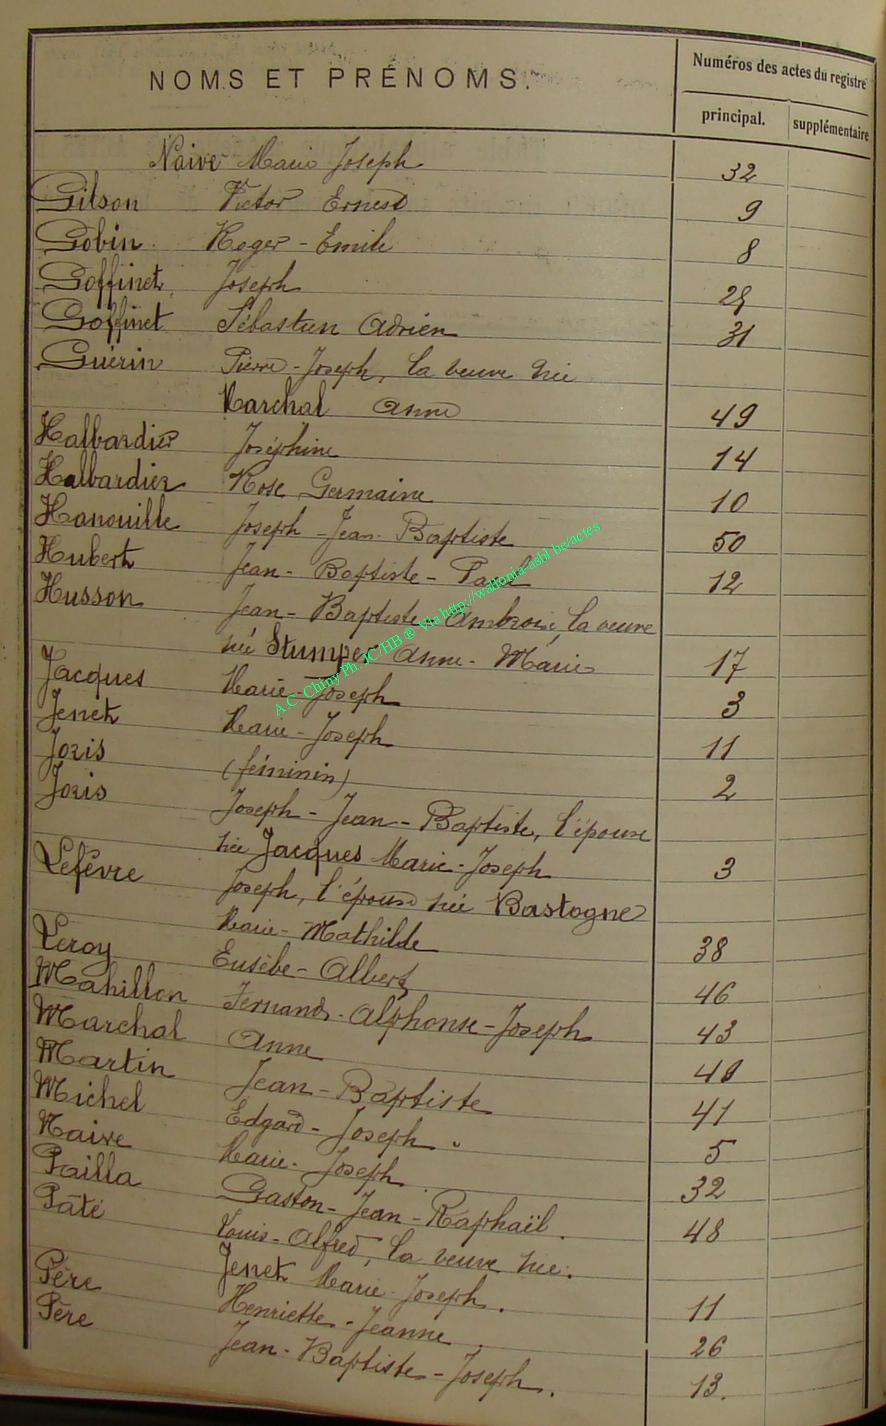 NOMS ET PRÉNOMS.
Numéros des actes du registre
principal. supplémentaire
Naive Marie Joseph 32
Gilson Victor Ernest 9
Gobin Roger - Emile 8
Goffinet Joseph 29
Goffinet Sébastien Adrien 31
Guérin Pierre - Joseph, la veuve née
Marchal Anne 49
Halbardier Joséphine 14
Halbardier Rose Germaine 10
Hanouille Joseph - Jean - Baptiste 50
Hubert Jean - Baptiste - Paul 12
Husson Jean - Baptiste - Ambroise, la veuve
née Stumper Anne - Marie 17
Jacques Marie - Joseph 3
Jenet Marie - Joseph 11
Joris (féminin) 2
Joris Joseph - Jean - Baptiste, l'épouse
née Jacques Marie - Joseph 3
Lefèvre Joseph, l'épouse née Bastogne
Marie - Mathilde 38
Leroy Eusèbe - Albert 46
Mahillon Fernand - Alphonse - Joseph 43
Marchal Anne
Martin Jean - Baptiste 41
Michel Edgard - Joseph 5
Naive Marie - Joseph 32
Pailla Gaston - Jean - Raphaël. 48
Paté Louis - Alfred, la veuve née.
Jenet Marie - Joseph. 11
Père Henriette - Jeanne. 26
Père Jean - Baptiste - Joseph. 13.
A.C. Chiny Ph. JC/HB ® Via http://wallonia-asbl.be/actes